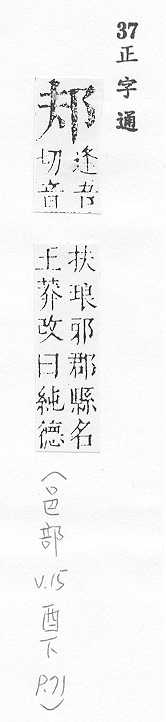 37正字通
邞
逢吾
切音
扶琅邪郡縣名
王莽改曰純德
(邑部 V.15 酉下 P.71)